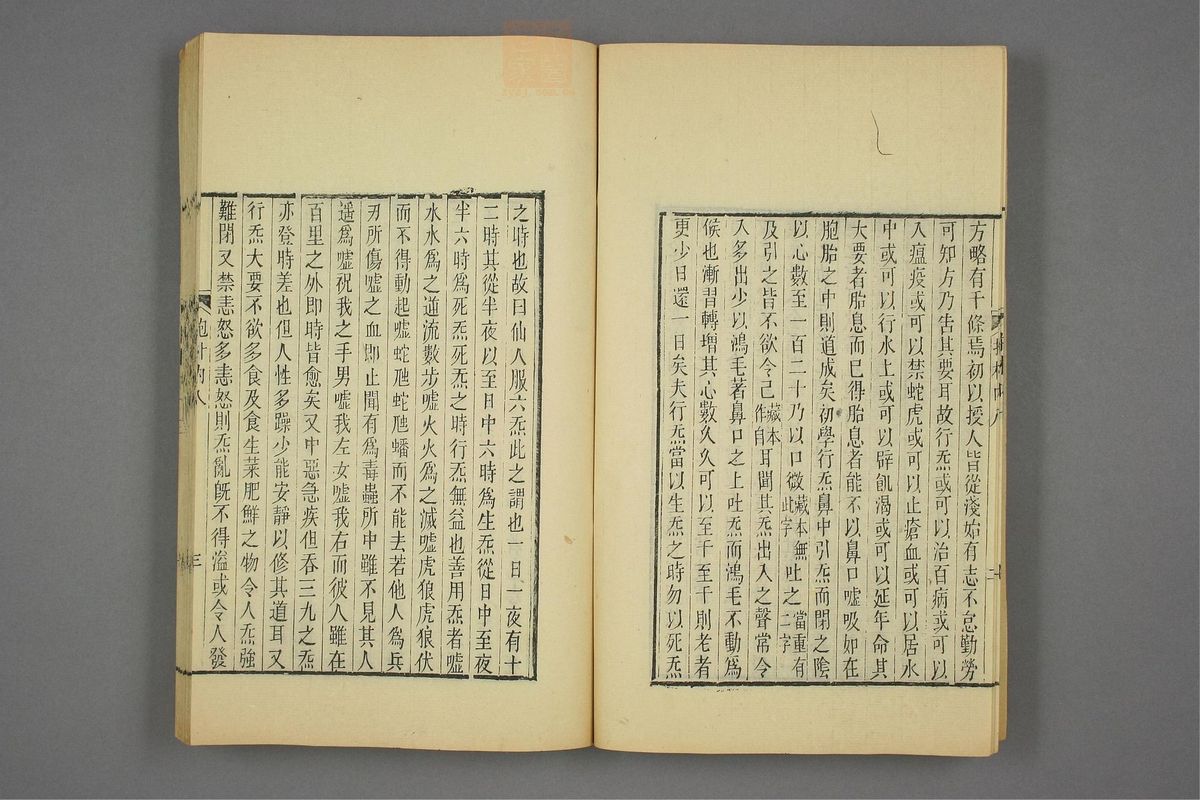 方略有千條焉初以授人皆從淺始有志不怠勤勞
可知方乃告其要耳故行炁或可以治百病或可以
入瘟疫或可以禁蛇虎或可以止瘡血或可以居水
中或可以行水上或可以辟飢渴或可以延年命其
大要者胎息而已得胎息者能不以鼻口噓吸如在
胞胎之中則道成矣初學行炁鼻中引炁而閉之陰
以心數至一百二十乃以口微藏本無此字吐之當重有二字
及引之皆不欲令己藏本作自耳聞其炁出入之聲常令
入多出少以鴻毛著鼻口之上吐炁而鴻毛不動為
候也漸習轉增其心數久久可以至千至千則老者
更少日還一日矣夫行炁當以生炁之時勿以死炁
之時也故曰仙人服六炁此之謂也一日一夜有十
二時其從半夜以至日中六時爲生炁從日中至夜
半六時爲死炁死炁之時行炁無益也善用炁者噓
水水爲之逆流數步噓火火爲之滅噓虎狼虎狼伏
而不得動起噓蛇虺蛇虺蟠而不能去若他人爲兵
刃所傷噓之血即止聞有爲毒蟲所中雖不見其人
遥爲噓祝我之手男噓我左女噓我右而彼人雖在
百里之外即時皆愈矣又中惡急疾但吞三九之炁
亦登時差也但人性多躁少能安靜以修其道耳又
行炁大要不欲多食及食生菜肥鮮之物令人炁強
難閉又禁恚怒多恚怒則炁亂既不得溢或令人發
三